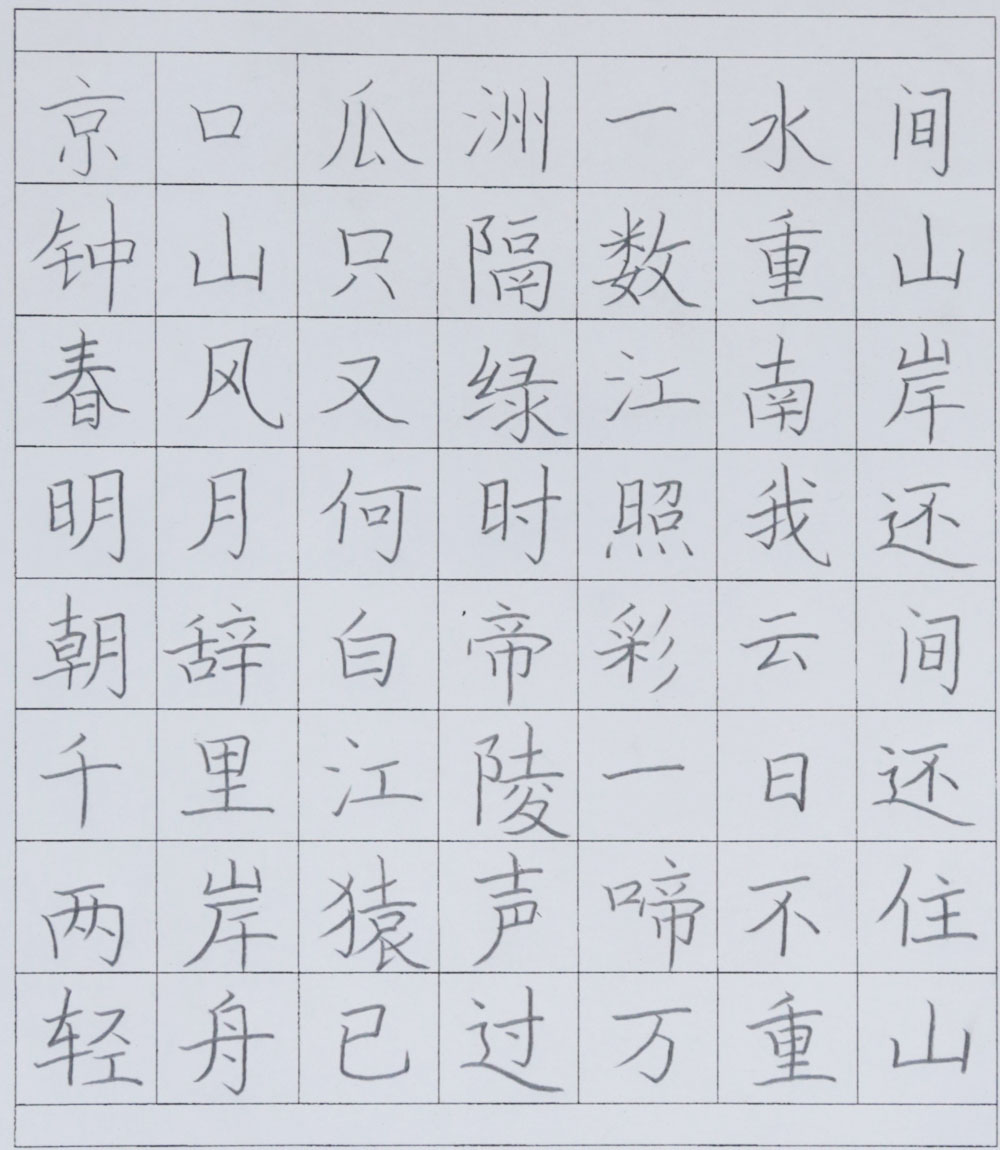 京口瓜洲一水间
钟山只隔数重山
春风又绿江南岸
明月何时照我还
朝辞白帝彩云间
千里江陵一日还
两岸猿声啼不住
轻舟已过万重山